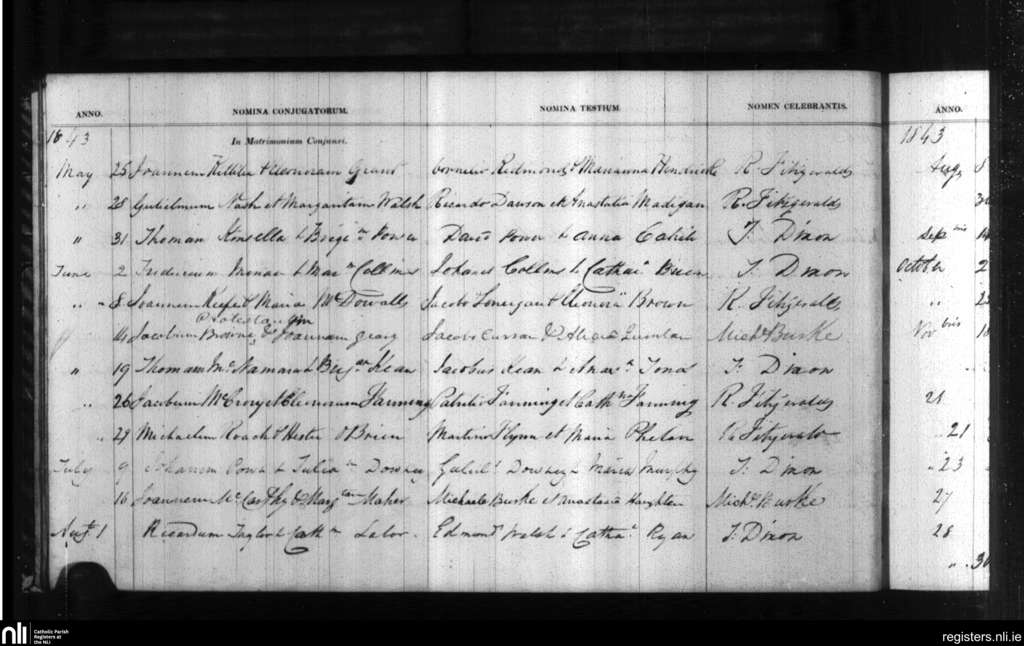 ANNO. NOMINA CONJUGATORUM. NOMINA TESTIUM. NOMEN CELEBRANTIS. ANNO.
1843 In Matrimonium Conjunxi. 1843
May 25 Joannem & Eleonoram Grant Redmond & Marianna R. Fitzgerald Aug 8
" 28 Gulielmum Nash et Margaritam Walsh Ricardo Dawson et Anastatia Madigan R. Fitzgerald
" 31 Thomam Kinsella & Brigm Power David Power & Anna Cahill T. Dixon Sep 14
June 2 Fredericum & Mar m Collins Johanes Collens & Catha Buen T. Dixon October 2
" 8 Joannem Keefe & Maria McDowall Jacobo Lonergan & Eleonora Brown R. Fitzgerald " 23
Protestan
14 Jacobum Browne & Joannam Geary Jacobo Curran & Alicia Quinlan Michl Burke Nov 18
" 19 Thomam McNamara & Brigam Kean Jacobus Kean & T. Dixon
" 26 Jacobum McCrory et Eleonoram Fanning Patritio Fanning et Cath Fanning R. Fitzgerald 21
" 29 Michaelem Roach & Hester O'Brien Martino Flynn et Maria Phelan R. Fitzgerald " 21
July 9 Johanem Power & Julia m Downey Guliel Downey & Maria Murphy T. Dixon " 23
16 Joannem McCarthy & Marg am Maher Michaele Burke et Anastasia Haughton Michl Burke 27
Augt 1 Ricardum Taylor & Cath m Lalor Edmond Walsh & Catha Ryan T. Dixon 28
" 30
nli Catholic Parish
Registers at
the NLI
registers.nli.ie